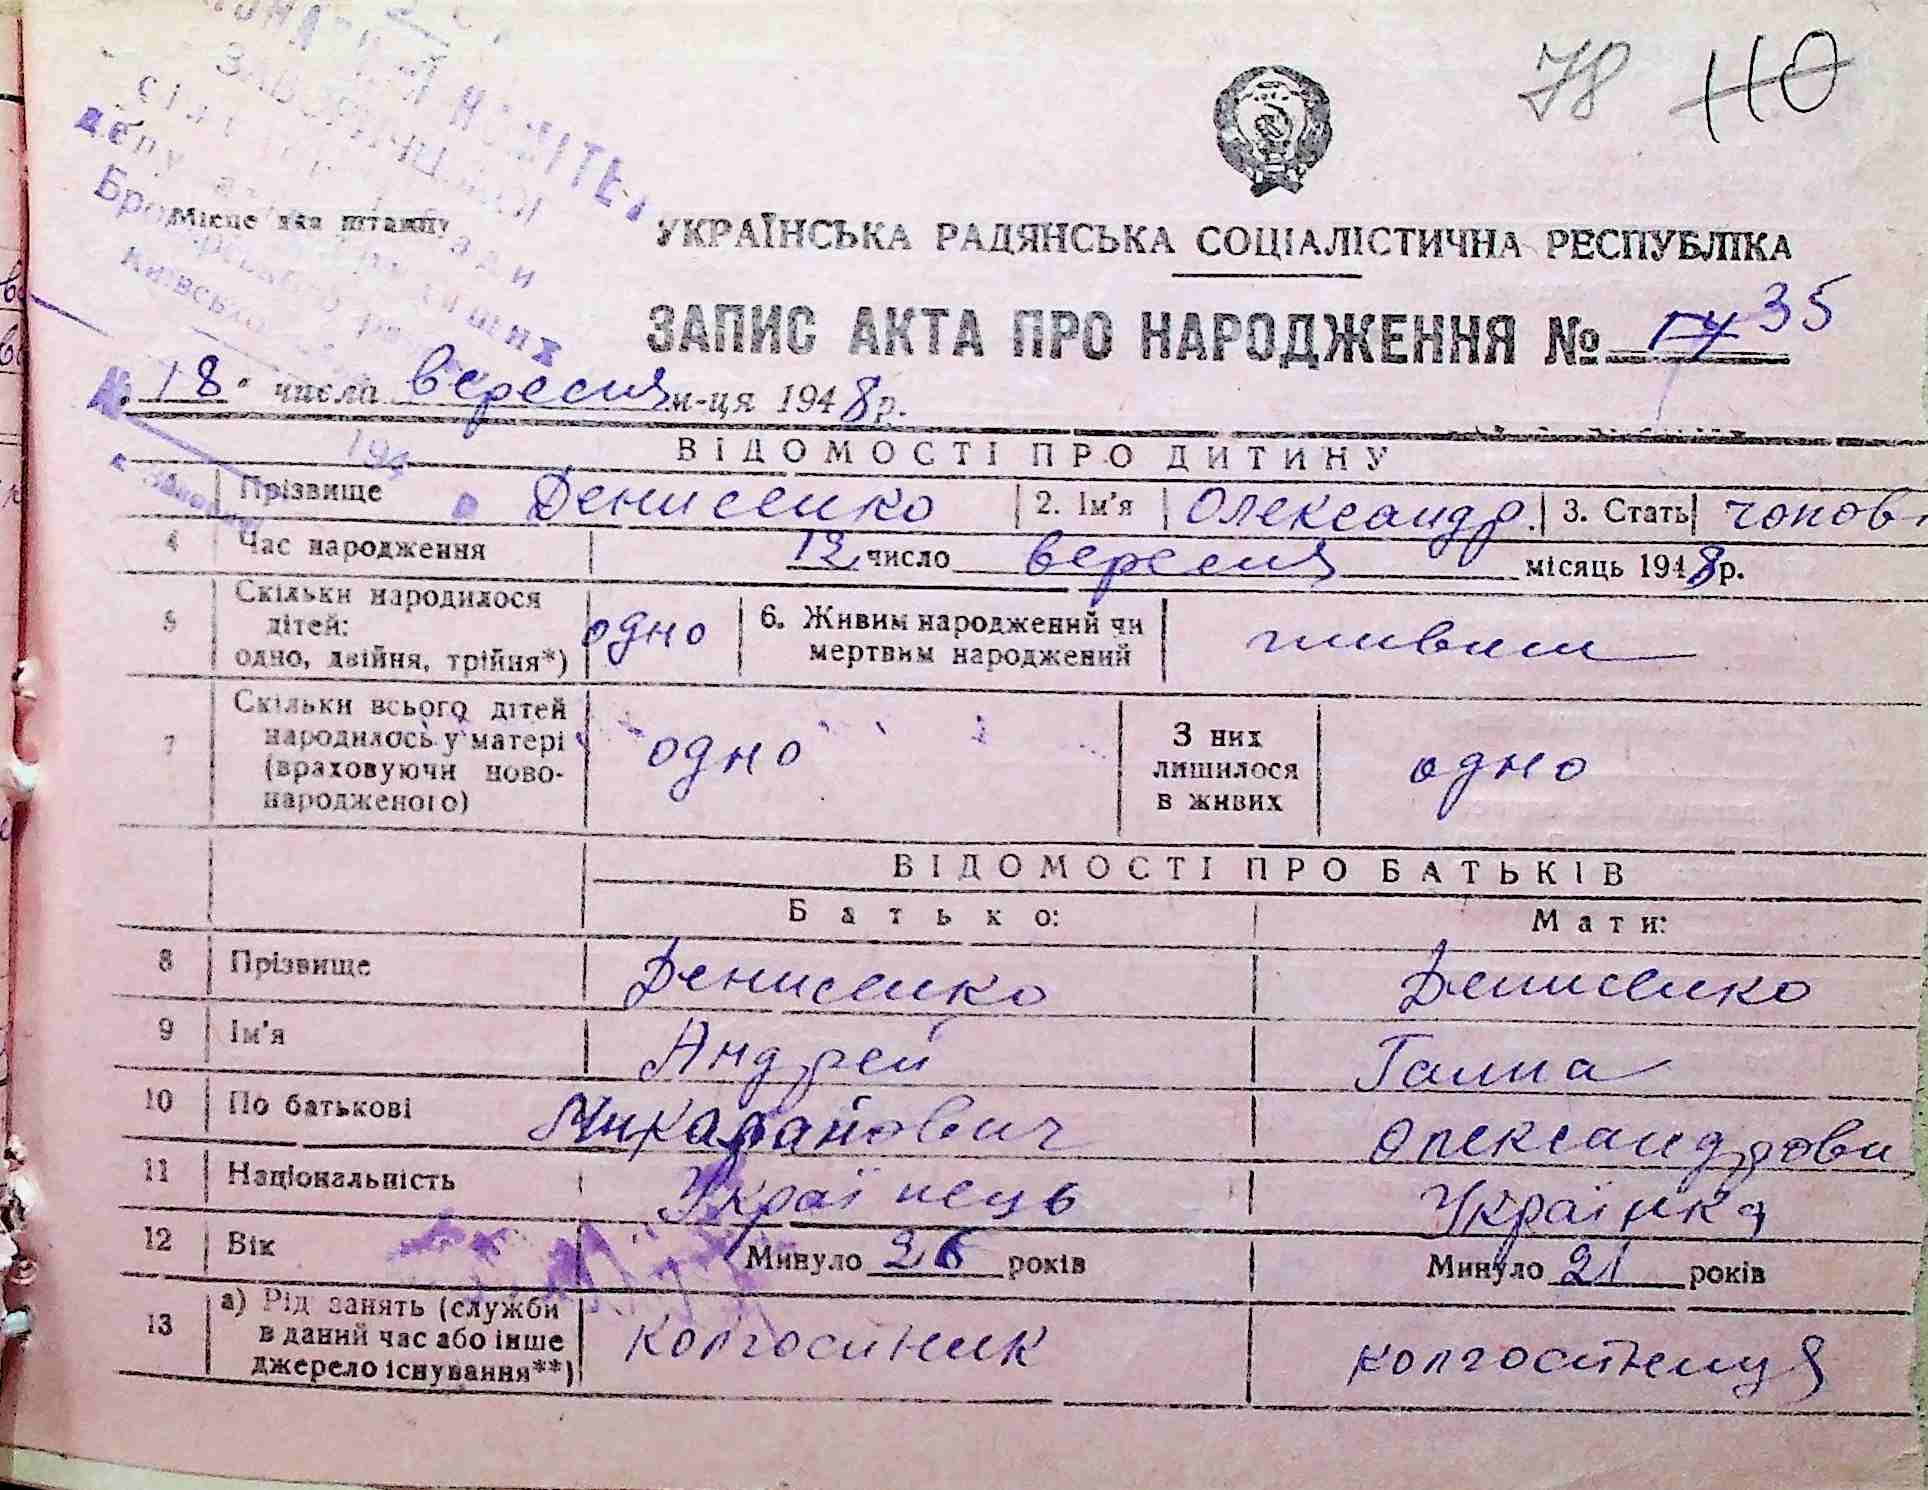 78 110
Місце для штампу
УКРАЇНСЬКА РАДЯНСЬКА СОЦІАЛІСТИЧНА РЕСПУБЛІКА
ЗАПИС АКТА ПРО НАРОДЖЕННЯ № 35
18 числа вересня м-ця 1948 р.
ВІДОМОСТІ ПРО ДИТИНУ
Прізвище Денисенко 2. Ім'я Олександр. 3. Стать чолов
4 Час народження 12 число вересня місяць 1948 р.
5 Скільки народилося
дітей:
одно, двійня, трійня*) одно 6. Живим народжений чи
мертвим народжений живим
7 Скільки всього дітей
народилось у матері
(враховуючи ново-
народженого) одно З них
лишилося
в живих одно
ВІДОМОСТІ ПРО БАТЬКІВ
Батько: Мати:
8 Прізвище Денисенко Денисенко
9 Ім'я Андрей Галина
10 По батькові Олександрови
11 Національність Українець Українка
12 Вік Минуло 26 років Минуло 21 років
13 а) Рід занять (служби
в даний час або інше
джерело існування**) колгоспник колгоспниця